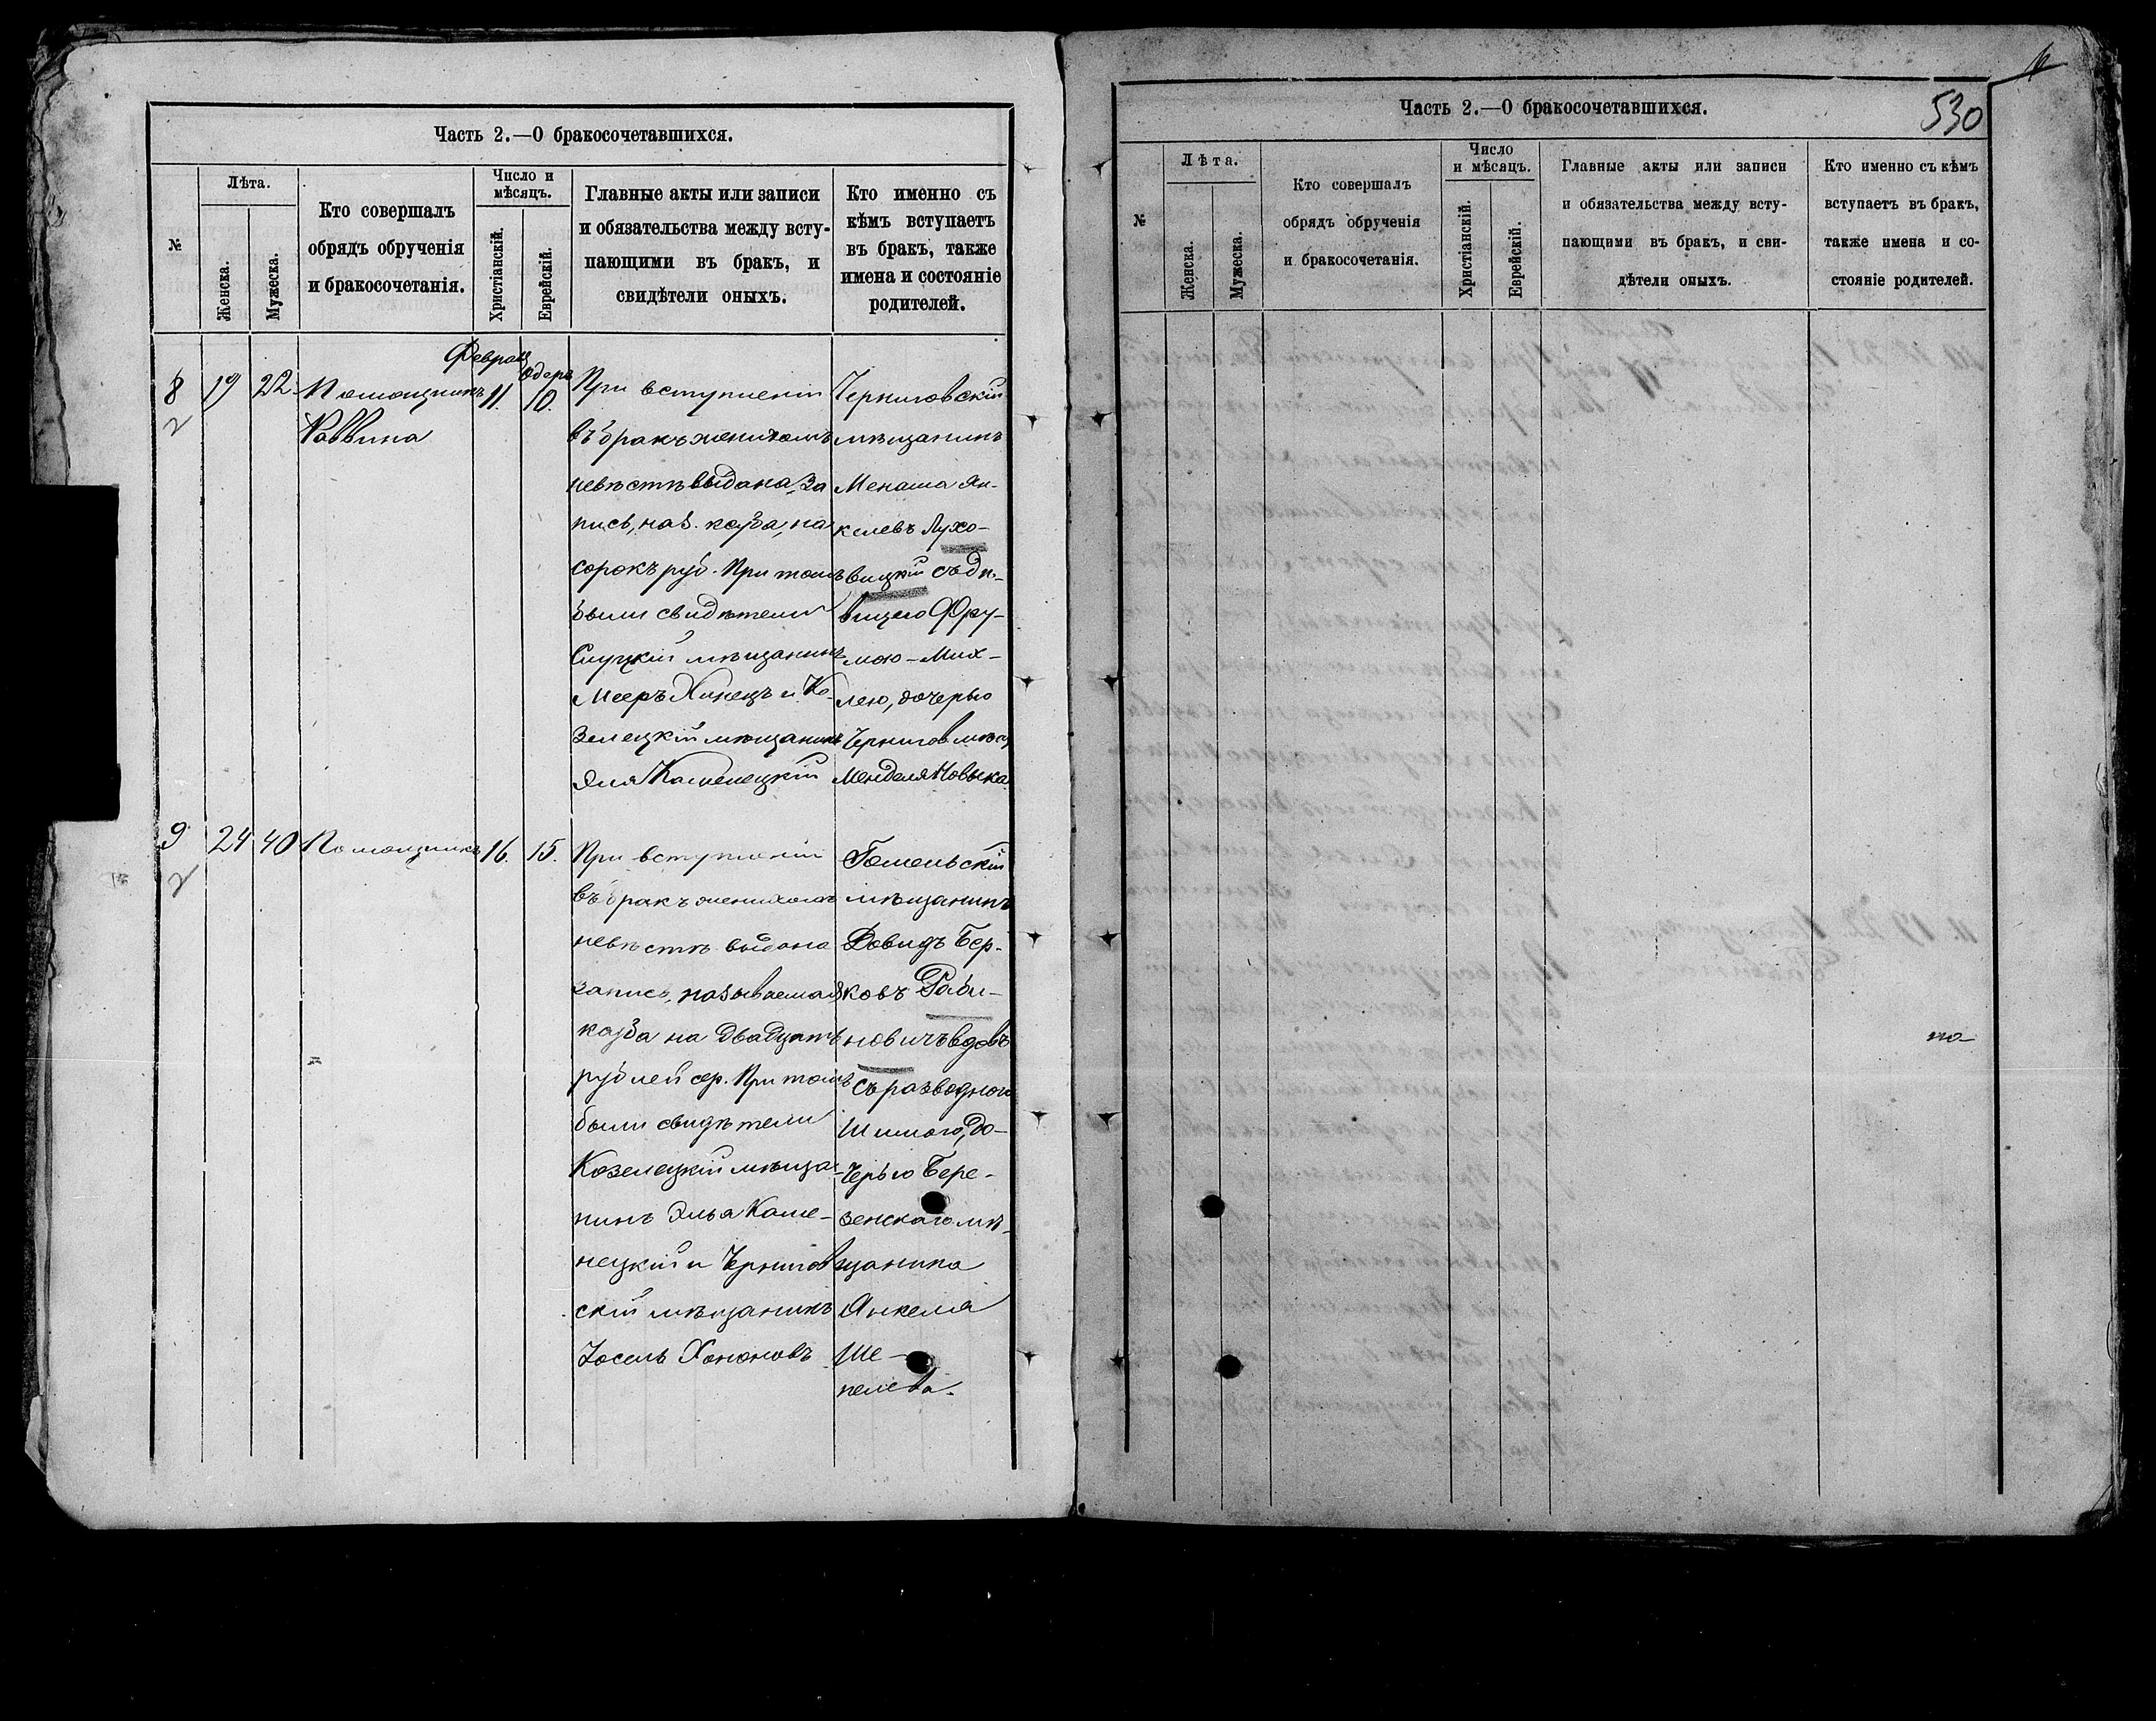 Часть 2.—О бракосочетавшихся.
№
Лѣта.
Женска.
Мужеска.
Кто совершалъ
обрядъ обрученія
и бракосочетанія.
Число и
мѣсяцъ.
Христіанскій.
Еврейскій.
Главные акты или записи
и обязательства между всту-
пающими въ бракъ, и
свидѣтели оныхъ.
Кто именно съ
кѣмъ вступаетъ
въ бракъ, также
имена и состояніе
родителей.
8
2
19
22
Помощникъ
Раввина
Феврал
11.
Одеръ
10.
При вступленіи
въ бракъ женихомъ
невѣстѣ выдана за
пись, наз. ксуба, на
сорокъ руб. При томъ
были свидѣтели
Слуцкій мѣщанинъ
Мееръ Хинецъ и Ко-
зелецкій мѣщанинъ
Эля Каменецкій
Черниговскій
мѣщанинъ
Менаша Ян-
келевъ Лухо-
вицкій съ дѣ-
вицею Фру-
мою-Мих-
лею, дочерью
Чернигов мѣщ
Менделя Новика
9
2
24
40
Помощникъ
16.
15.
При вступленіи
въ бракъ женихомъ
невѣстѣ выдана
запись, называемая
ксуба на двадцать
рублей сер. При томъ
были свидѣтели
Козелецкій мѣща-
нинъ Элья Каме-
нецкій и Чернигов
скій мѣщанинъ
Іосель Хононовъ
Гомельскій
мѣщанинъ
Довидъ Бер-
ковъ Раби-
новичъ вдовъ
съ разводною
до-
черью Бере-
зенскаго мѣ-
щанина
Янкеля
Ше-
пелева.
Часть 2.—О бракосочетавшихся.
530
№
Лѣта.
Женска.
Мужеска.
Кто совершалъ
обрядъ обрученія
и бракосочетанія.
Число
и мѣсяцъ.
Христіанскій.
Еврейскій.
Главные акты или записи
и обязательства между всту-
пающими въ бракъ, и сви-
дѣтели оныхъ.
Кто именно съ кѣмъ
вступаетъ въ бракъ,
также имена и со-
стояніе родителей.